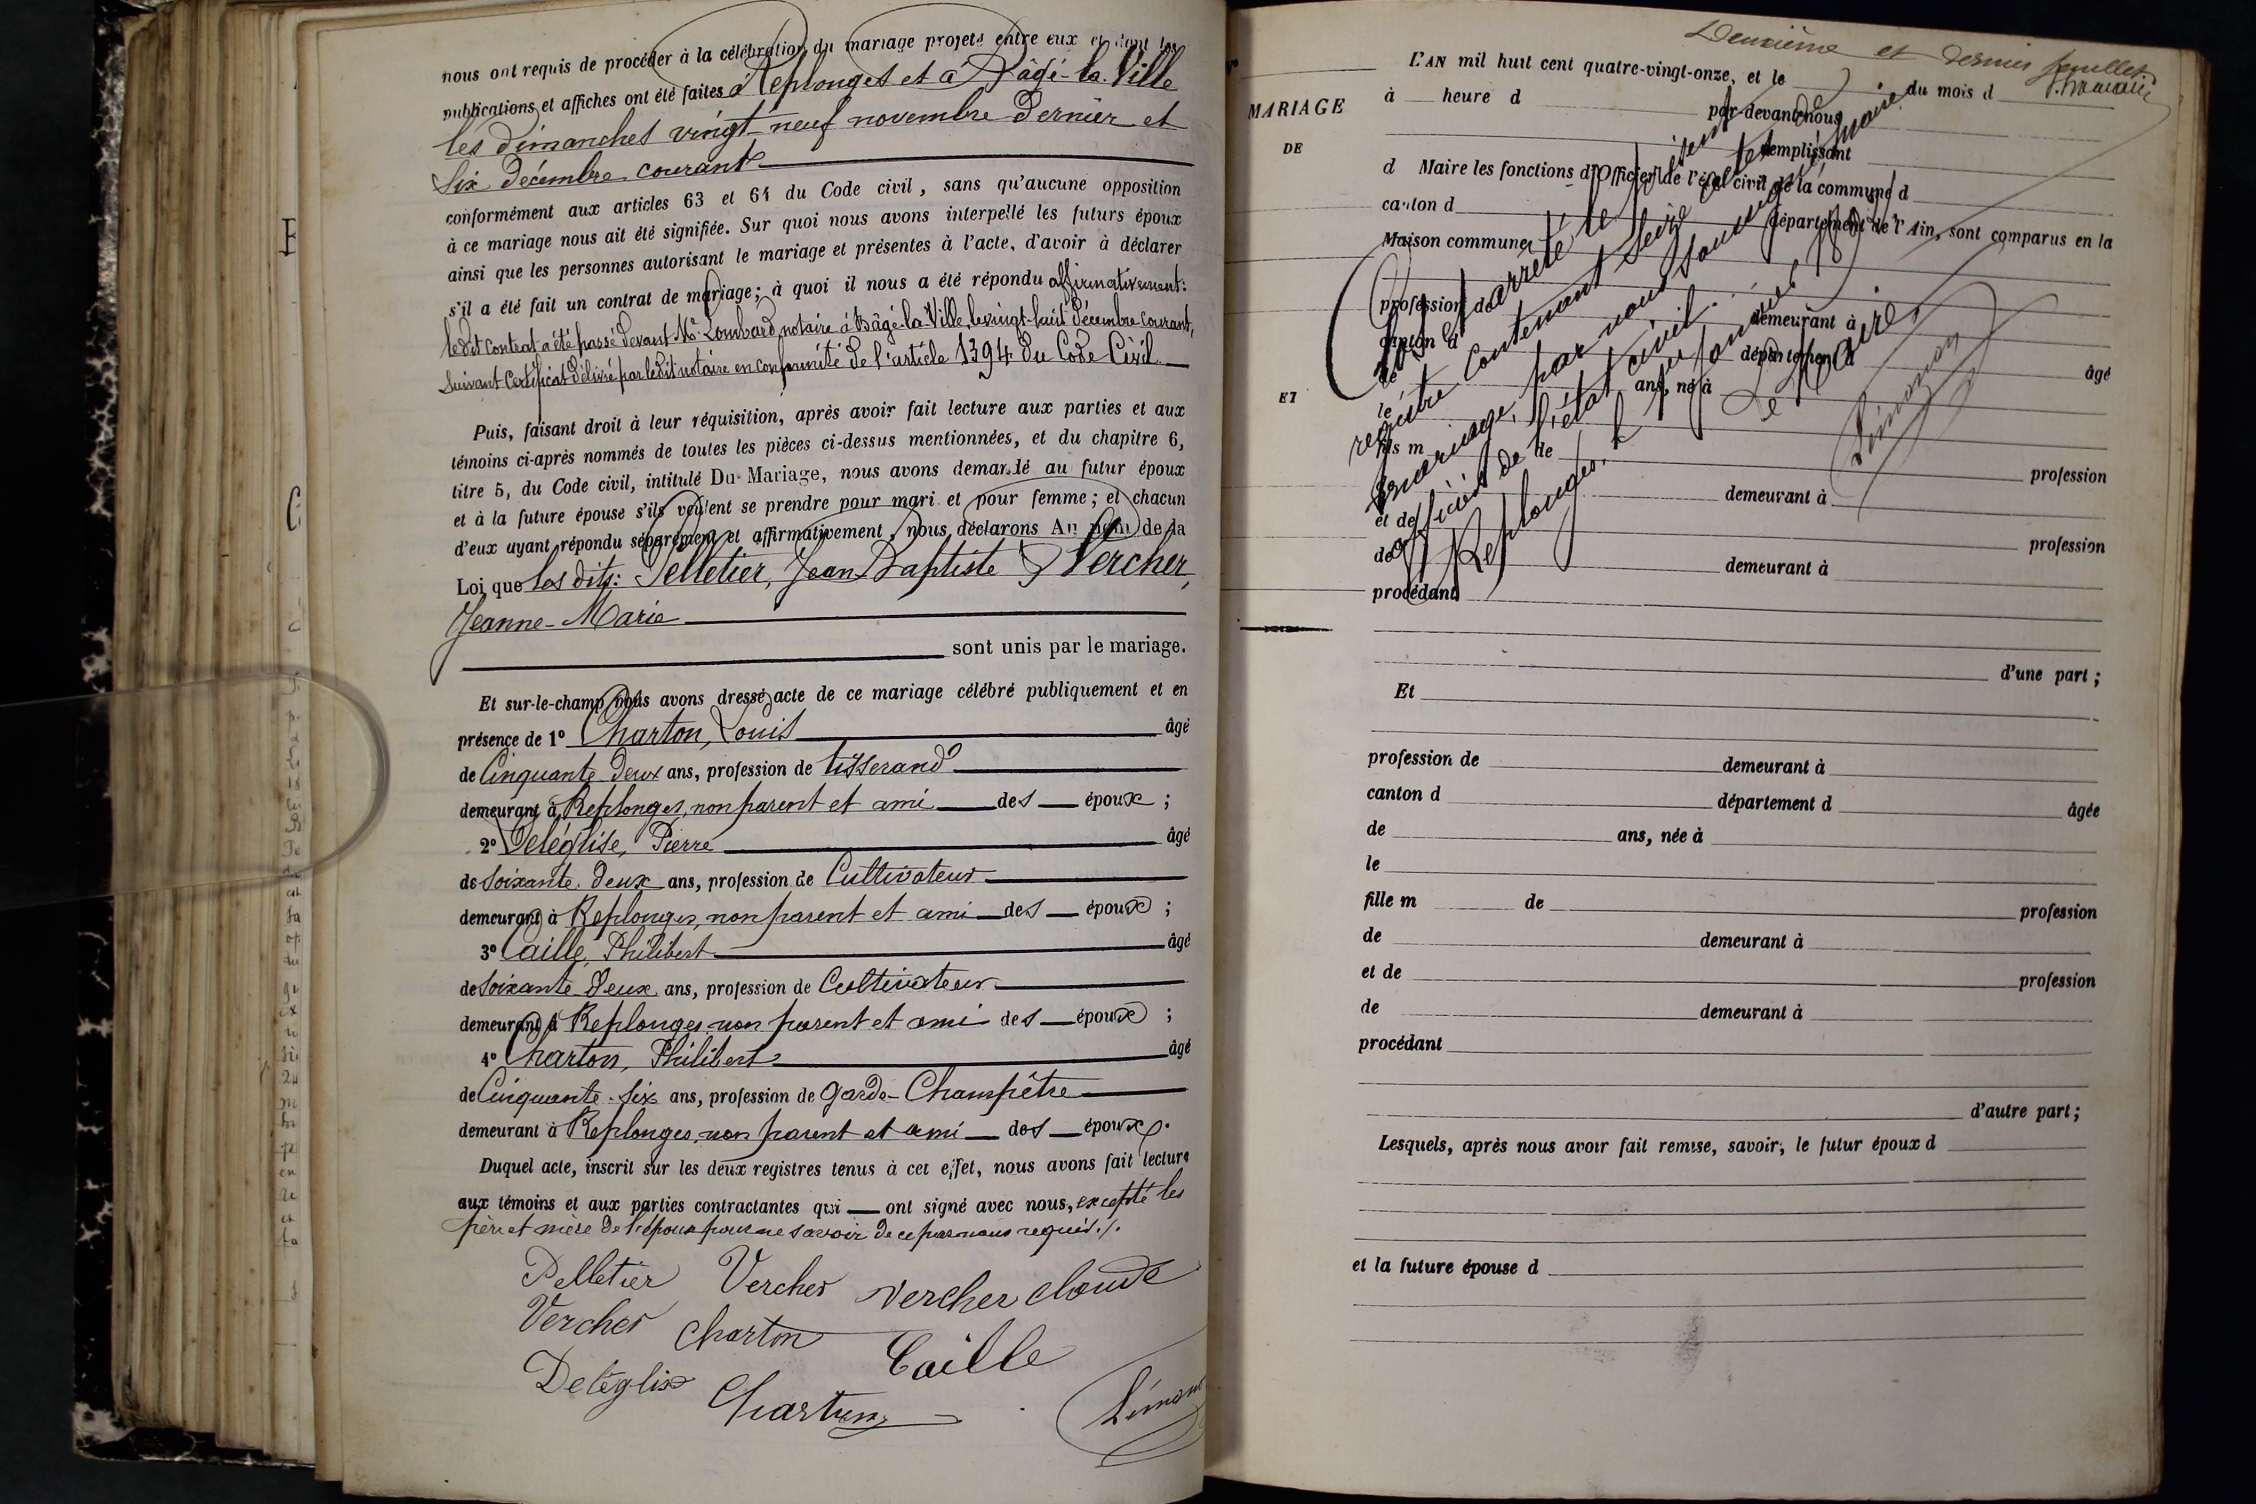 nous ont requis de procéder à la célébration du mariage projeté entre eux et dont les
publications et affiches ont été faites à Replonges et à Bâgé-la-Ville
les dimanches vingt-neuf novembre dernier et
six décembre courant
conformément aux articles 63 et 64 du Code civil, sans qu'aucune opposition
à ce mariage nous ait été signifiée. Sur quoi nous avons interpellé les futurs époux
ainsi que les personnes autorisant le mariage et présentes à l'acte, d'avoir à déclarer
s'il a été fait un contrat de mariage; à quoi il nous a été répondu affirmativement:
ledit contrat a été passé devant Me Lombard, notaire à Bâgé-la-Ville, le vingt-huit décembre courant,
suivant certificat délivré par ledit notaire en conformité de l'article 1394 du Code Civil
Puis, faisant droit à leur réquisition, après avoir fait lecture aux parties et aux
témoins ci-après nommés de toutes les pièces ci-dessus mentionnées, et du chapitre 6,
titre 5, du Code civil, intitulé Du Mariage, nous avons demandé au futur époux
et à la future épouse s'ils veulent se prendre pour mari et pour femme; et chacun
d'eux ayant répondu séparément et affirmativement, nous déclarons Au nom de la
Loi que les dits: Pelletier, Jean Baptiste & Vercher,
Jeanne-Marie
sont unis par le mariage.
Et sur-le-champ nous avons dressé acte de ce mariage célébré publiquement et en
présence de 1° Charton, Louis âgé
de Cinquante deux ans, profession de tisserand
demeurant à Replonges, non parent et ami des époux ;
2° Deléglise, Pierre âgé
de soixante deux ans, profession de Cultivateur
demeurant à Replonges, non parent et ami des époux ;
3° Caille, Philibert âgé
de soixante deux ans, profession de Cultivateur
demeurant à Replonges, non parent et ami des époux ;
4° Charton, Philibert âgé
de Cinquante-six ans, profession de garde-Champêtre
demeurant à Replonges, non parent et ami des époux.
Duquel acte, inscrit sur les deux registres tenus à cet effet, nous avons fait lecture
aux témoins et aux parties contractantes qui ont signé avec nous, excepté les
père et mère de l'époux pour ne savoir de ce par nous requis./.
Pelletier Vercher Vercher Claude
Vercher Charton Caille
Deléglise Charton
Limon
Deuxième et dernier feuillet.
L'AN mil huit cent quatre-vingt-onze, et le du mois d
à heure d par-devant nous
MARIAGE
remplissant
DE
d Maire les fonctions d'Officier de l'état civil de la commune d
canton d département de l'Ain, sont comparus en la
Maison commune
Clos et arrêté le présent
registre contenant seize actes de
mariage, par nous soussigné, maire
officier de l'état civil.
Replonges, le 1er janvier 1892
Le Maire,
profession de demeurant à
canton d département d âgé
de ans, né à
ET
le
fils m de profession
demeurant à
et de profession
de demeurant à
procédant
d'une part ;
Et
profession de demeurant à
canton d département d âgée
de ans, née à
le
fille m de profession
de demeurant à
et de profession
de demeurant à
procédant
d'autre part ;
Lesquels, après nous avoir fait remise, savoir, le futur époux d
et la future épouse d